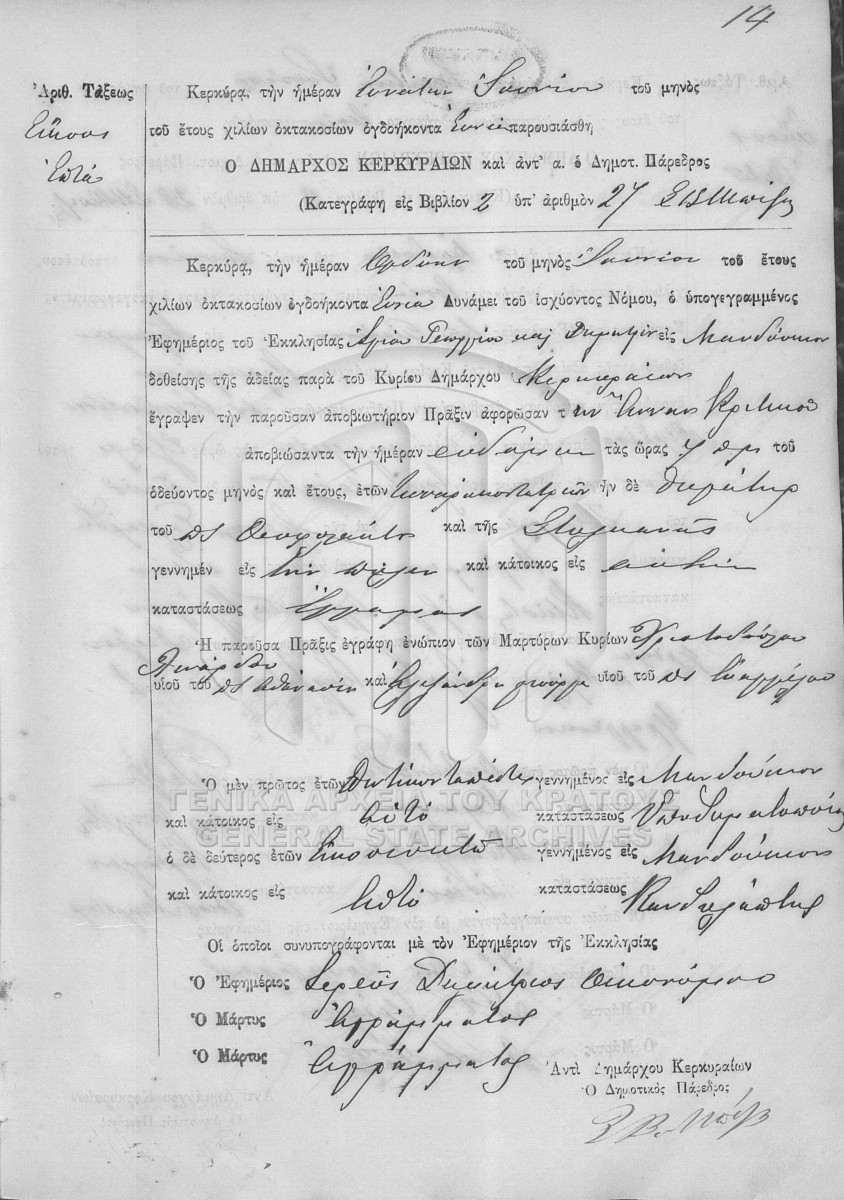 14
Ἀριθ. Τάξεως
Εἴκοσι
ἑπτά
Κερκύρᾳ, τὴν ἡμέραν Ἐννάτην Ἰουνίου τοῦ μηνὸς
τοῦ ἔτους χιλίων ὀκτακοσίων ὀγδοήκοντα Ἐννέα παρουσιάσθη
Ο ΔΗΜΑΡΧΟΣ ΚΕΡΚΥΡΑΙΩΝ καὶ ἀντ' α. ὁ Δημοτ. Πάρεδρος
(Κατεγράφη εἰς Βιβλίον 2 ὑπ' ἀριθμὸν 27
Κερκύρᾳ, τὴν ἡμέραν Ὀγδόην τοῦ μηνὸς Ἰουνίου τοῦ ἔτους
χιλίων ὀκτακοσίων ὀγδοήκοντα Ἐννέα Δυνάμει τοῦ ἰσχύοντος Νόμου, ὁ ὑπογεγραμμένος
Ἐφημέριος τοῦ Ἐκκλησίας Ἁγίου Γεωργίου καὶ Δημητρίου εἰς Μανδούκιον
δοθείσης τῆς ἀδείας παρὰ τοῦ Κυρίου Δημάρχου Κερκυραίων
ἔγραψεν τὴν παροῦσαν ἀποβιωτήριον Πρᾶξιν ἀφορῶσαν τ ὴν Ἄνναν
ἀποβιώσαντα τὴν ἡμέραν ἑβδόμην τὰς ὥρας 7 πμ τοῦ
ὁδεύοντος μηνὸς καὶ ἔτους, ἐτῶν ἦν δὲ θυγάτηρ
τοῦ πτ Θεοφυλάκτου καὶ τῆς Στυλιανῆς
γεννημέν εἰς τὴν πόλιν καὶ κάτοικος εἰς αὐτὴν
καταστάσεως Ἔγγαμος
Ἡ παροῦσα Πρᾶξις ἐγράφη ἐνώπιον τῶν Μαρτύρων Κυρίων Χριστοδούλου
υἱοῦ τοῦ πτ Ἀθανασίου καὶ Ἀλεξάνδρου υἱοῦ τοῦ πτ Εὐαγγέλου
Ὁ μὲν πρῶτος ἐτῶν Πεντήκοντα πέντε γεννημένος εἰς Μανδούκιον
καὶ κάτοικος εἰς αὐτό καταστάσεως Ὑποδηματοποιός
ὁ δὲ δεύτερος ἐτῶν Εἰκοσιοκτώ γεννημένος εἰς Μανδούκιον
καὶ κάτοικος εἰς αὐτό καταστάσεως Κανδηλάπτης
Οἱ ὁποῖοι συνυπογράφονται μὲ τὸν Ἐφημέριον τῆς Ἐκκλησίας
Ὁ Ἐφημέριος Ἱερεὺς Δημήτριος Οἰκονόμου
Ὁ Μάρτυς Ἀγράμματος
Ὁ Μάρτυς Ἀγράμματος
Ἀντὶ Δημάρχου Κερκυραίων
Ὁ Δημοτικὸς Πάρεδρος
ΓΕΝΙΚΑ ΑΡΧΕΙΑ ΤΟΥ ΚΡΑΤΟΥΣ
GENERAL STATE ARCHIVES